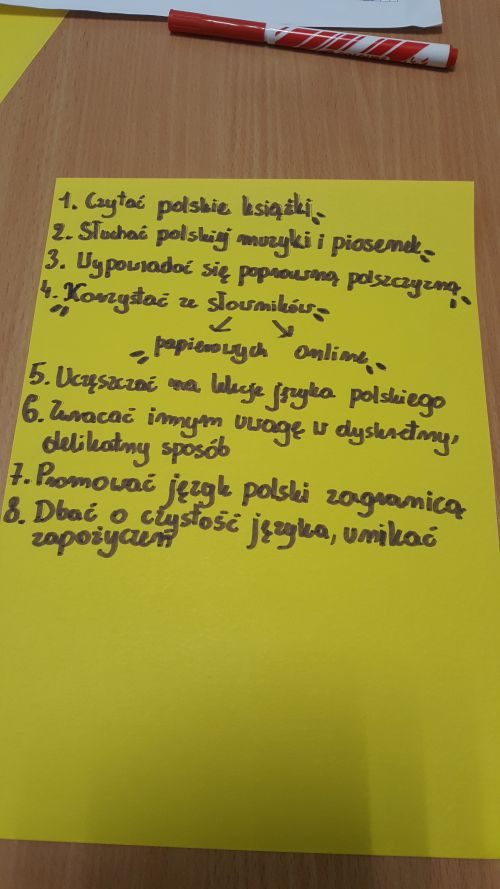 1. Czytać polskie książki
2. Słuchać polskiej muzyki i piosenek
3. Wypowiadać się poprawną polszczyzną
4. Korzystać ze słowników
papierowych online
5. Uczęszczać na lekcje języka polskiego
6. Zwracać innym uwagę w dyskretny,
delikatny sposób
7. Promować język polski zagranicą
8. Dbać o czystość języka, unikać
zapożyczeń